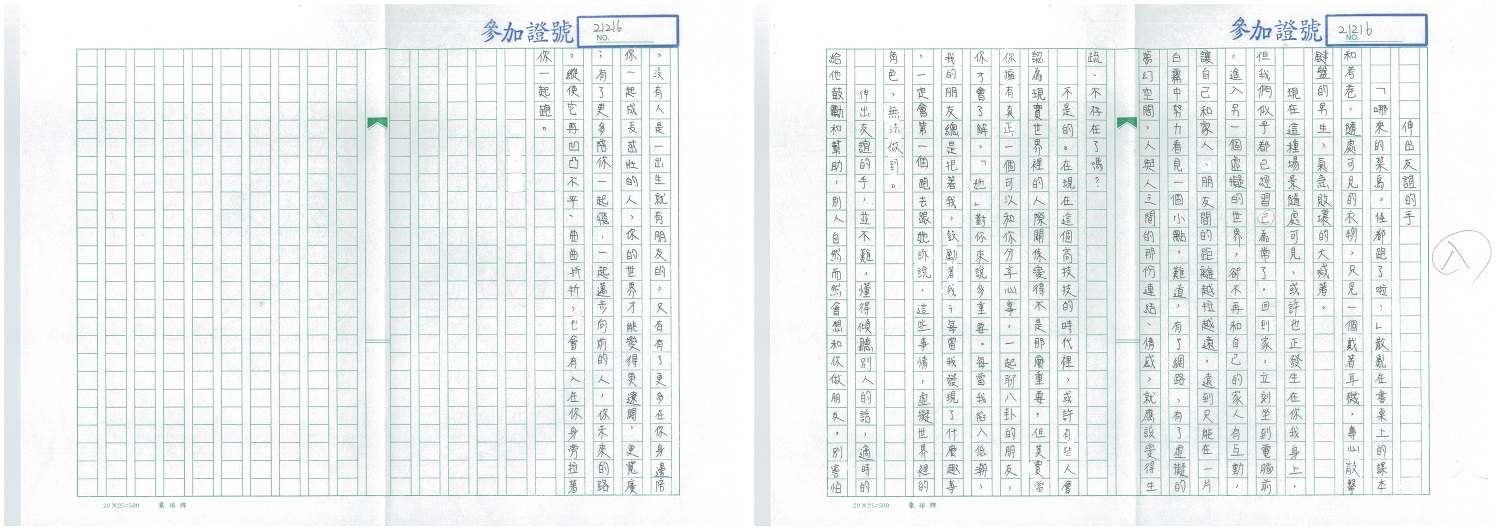 參加證號
21216
NO.
伸出友誼的手
「哪來的菜鳥，怪都跑了啦！」散亂在書桌上的課本
和考卷，隨處可見的衣物，只見一個戴著耳機，專心敲擊
鍵盤的男生，氣急敗壞的大喊著。
現在這種場景隨處可見，或許也正發生在你我身上，
但我們似乎都已經習已為常了。回到家，立刻坐到電腦前
，進入另一個虛擬的世界，卻不再和自己的家人有互動，
讓自己和家人、朋友間的距離越拉越遠，遠到只能在一片
白霧中努力看見一個小點，難道，有了網路，有了虛擬的
夢幻空間，人與人之間的那份連結、情感，就應該變得生
疏、不存在了嗎？
不是的。在現在這個高技技的時代裡，或許有些人會
認為現實世界裡的人際關係變得不是那麼重要，但其實當
你擁有真正一個可以和你分享心事，一起聊八卦的朋友，
你才會了解，「她」對你來說多重要。每當我陷入低潮，
我的朋友總是抱著我，鼓勵著我；每當我發現了什麼趣事
，一定會第一個跑去跟她訴說，這些事情，虛擬世界裡的
角色，無法做到。
伸出友誼的手，並不難，懂得傾聽別人的話，適時的
給他鼓勵和幫助，別人自然而然會想和你做朋友，別害怕
20×25=500
象球牌
八
參加證號
21216
NO.
，沒有人是一出生就有朋友的，只有有了更多在你身邊陪
你一起成長茁壯的人，你的世界才能變得更遼闊，更寬廣
；有了更多陪你一起飛，一起邁步向前的人，你未來的路
，縱使它再凹凸不平、曲曲折折，也會有人在你身旁拉著
你一起跑。
20×25=500
象球牌